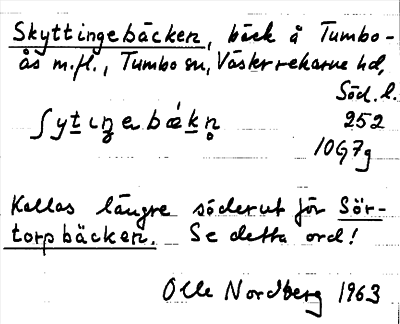 Skyttingebäcken, bäck å Tumbo-
ås m.fl., Tumbo sn, Väster rekarne hd,
Söd. l.
252
10G7g
Kallas längre söderut för Sör-
torpbäcken. Se detta ord!
Olle Nordberg 1963